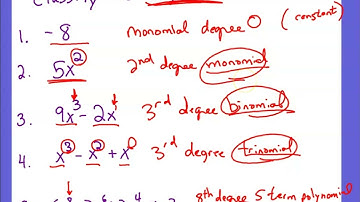 Classify
1. -8 monomial degree 0 (constant)
2. 5x² 2nd degree monomial
3. 9x³ - 2x¹ 3rd degree binomial
4. x³ - x² + x 3rd degree trinomial
8th degree 5-term polynomial